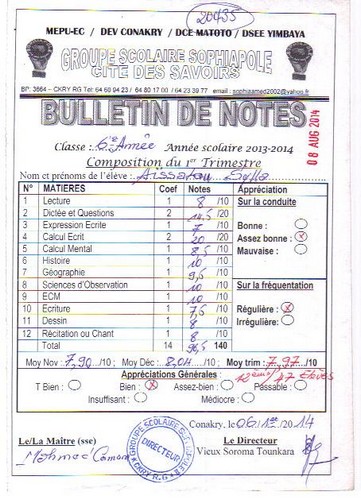 20435
MEPU-EC / DEV CONAKRY / DCE MATOTO / DSEE YIMBAYA
GROUPE SCOLAIRE SOPHIAPOLE
CITE DES SAVOIRS
BP: 3664 – CKRY RG Tel: 64 60 94 23 / 64 80 17 00 / 64 23 39 77 email : sophiamed2002@yahoo.fr
BULLETIN DE NOTES
08 AUG 2014
Classe : 6e Année Année scolaire 2013-2014
Composition du 1er Trimestre
Nom et prénoms de l'élève : Aissatou Sylla
N° MATIERES Coef Notes Appréciation
1 Lecture 1 8 /10 Sur la conduite
2 Dictée et Questions 2 14,5 /20
3 Expression Ecrite 1 7 /10 Bonne :
4 Calcul Ecrit 2 20 /20 Assez bonne :
5 Calcul Mental 1 8,5 /10 Mauvaise :
6 Histoire 1 10 /10
7 Géographie 1 9,5 /10
8 Sciences d'Observation 1 10 /10 Sur la fréquentation
9 ECM 1 10 /10
10 Ecriture 1 7,5 /10 Régulière :
11 Dessin 1 8 /10 Irrégulière :
12 Récitation ou Chant 1 8 /10
Total 14 140
Moy Nov : 7,90 /10 Moy Déc : 8,04 /10 Moy trim : 7,97 /10
Appréciations Générales : 12ème/47 élèves
T Bien : Bien : Assez-bien : Passable :
Insuffisant : Médiocre :
Conakry, le /2014
Le/La Maître (sse) Le Directeur
GROUPE SCOLAIRE
DIRECTEUR
CKRY R.G
Vieux Soroma Tounkara